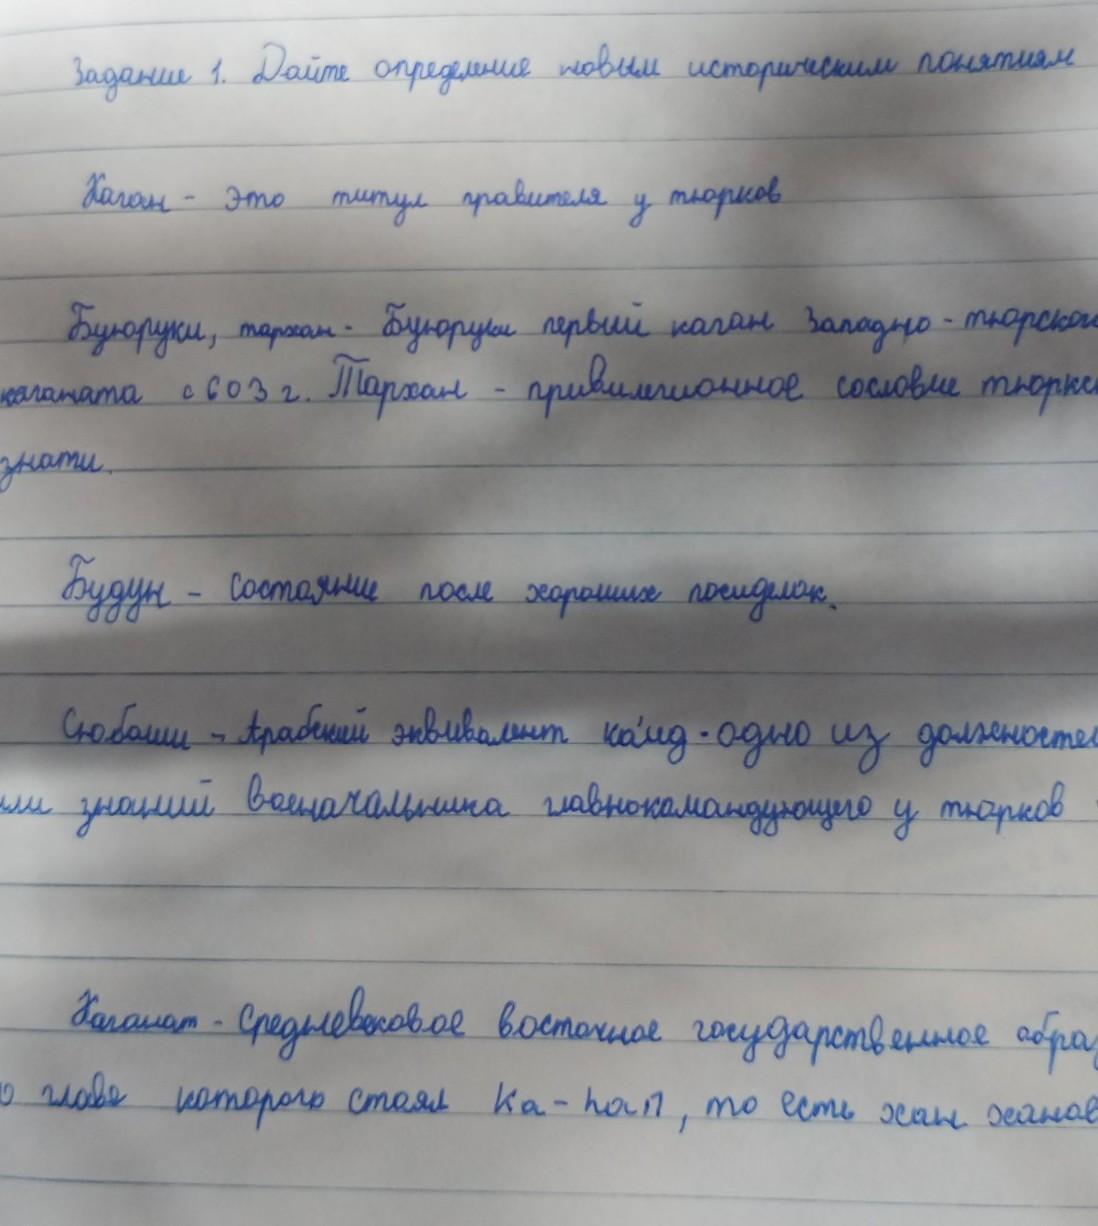 Задание 1. Дайте определение новым историческим понятиям
Каган - это титул правителя у тюрков
Буюруки, тархан - Буюруки первый каган Западно - тюрского
каганата с 603 г. Тархан - привилегионное сословие тюркс
знати.
Будун - состояние после хороших посиделок.
Сюбаши - Арабский эквивалент ка́ид - одно из должностей
или званий военачальника главнокомандующего у тюрков
Каганат - Средневековое восточное государственное образ
во главе которого стоял Ka-han, то есть хан ханов